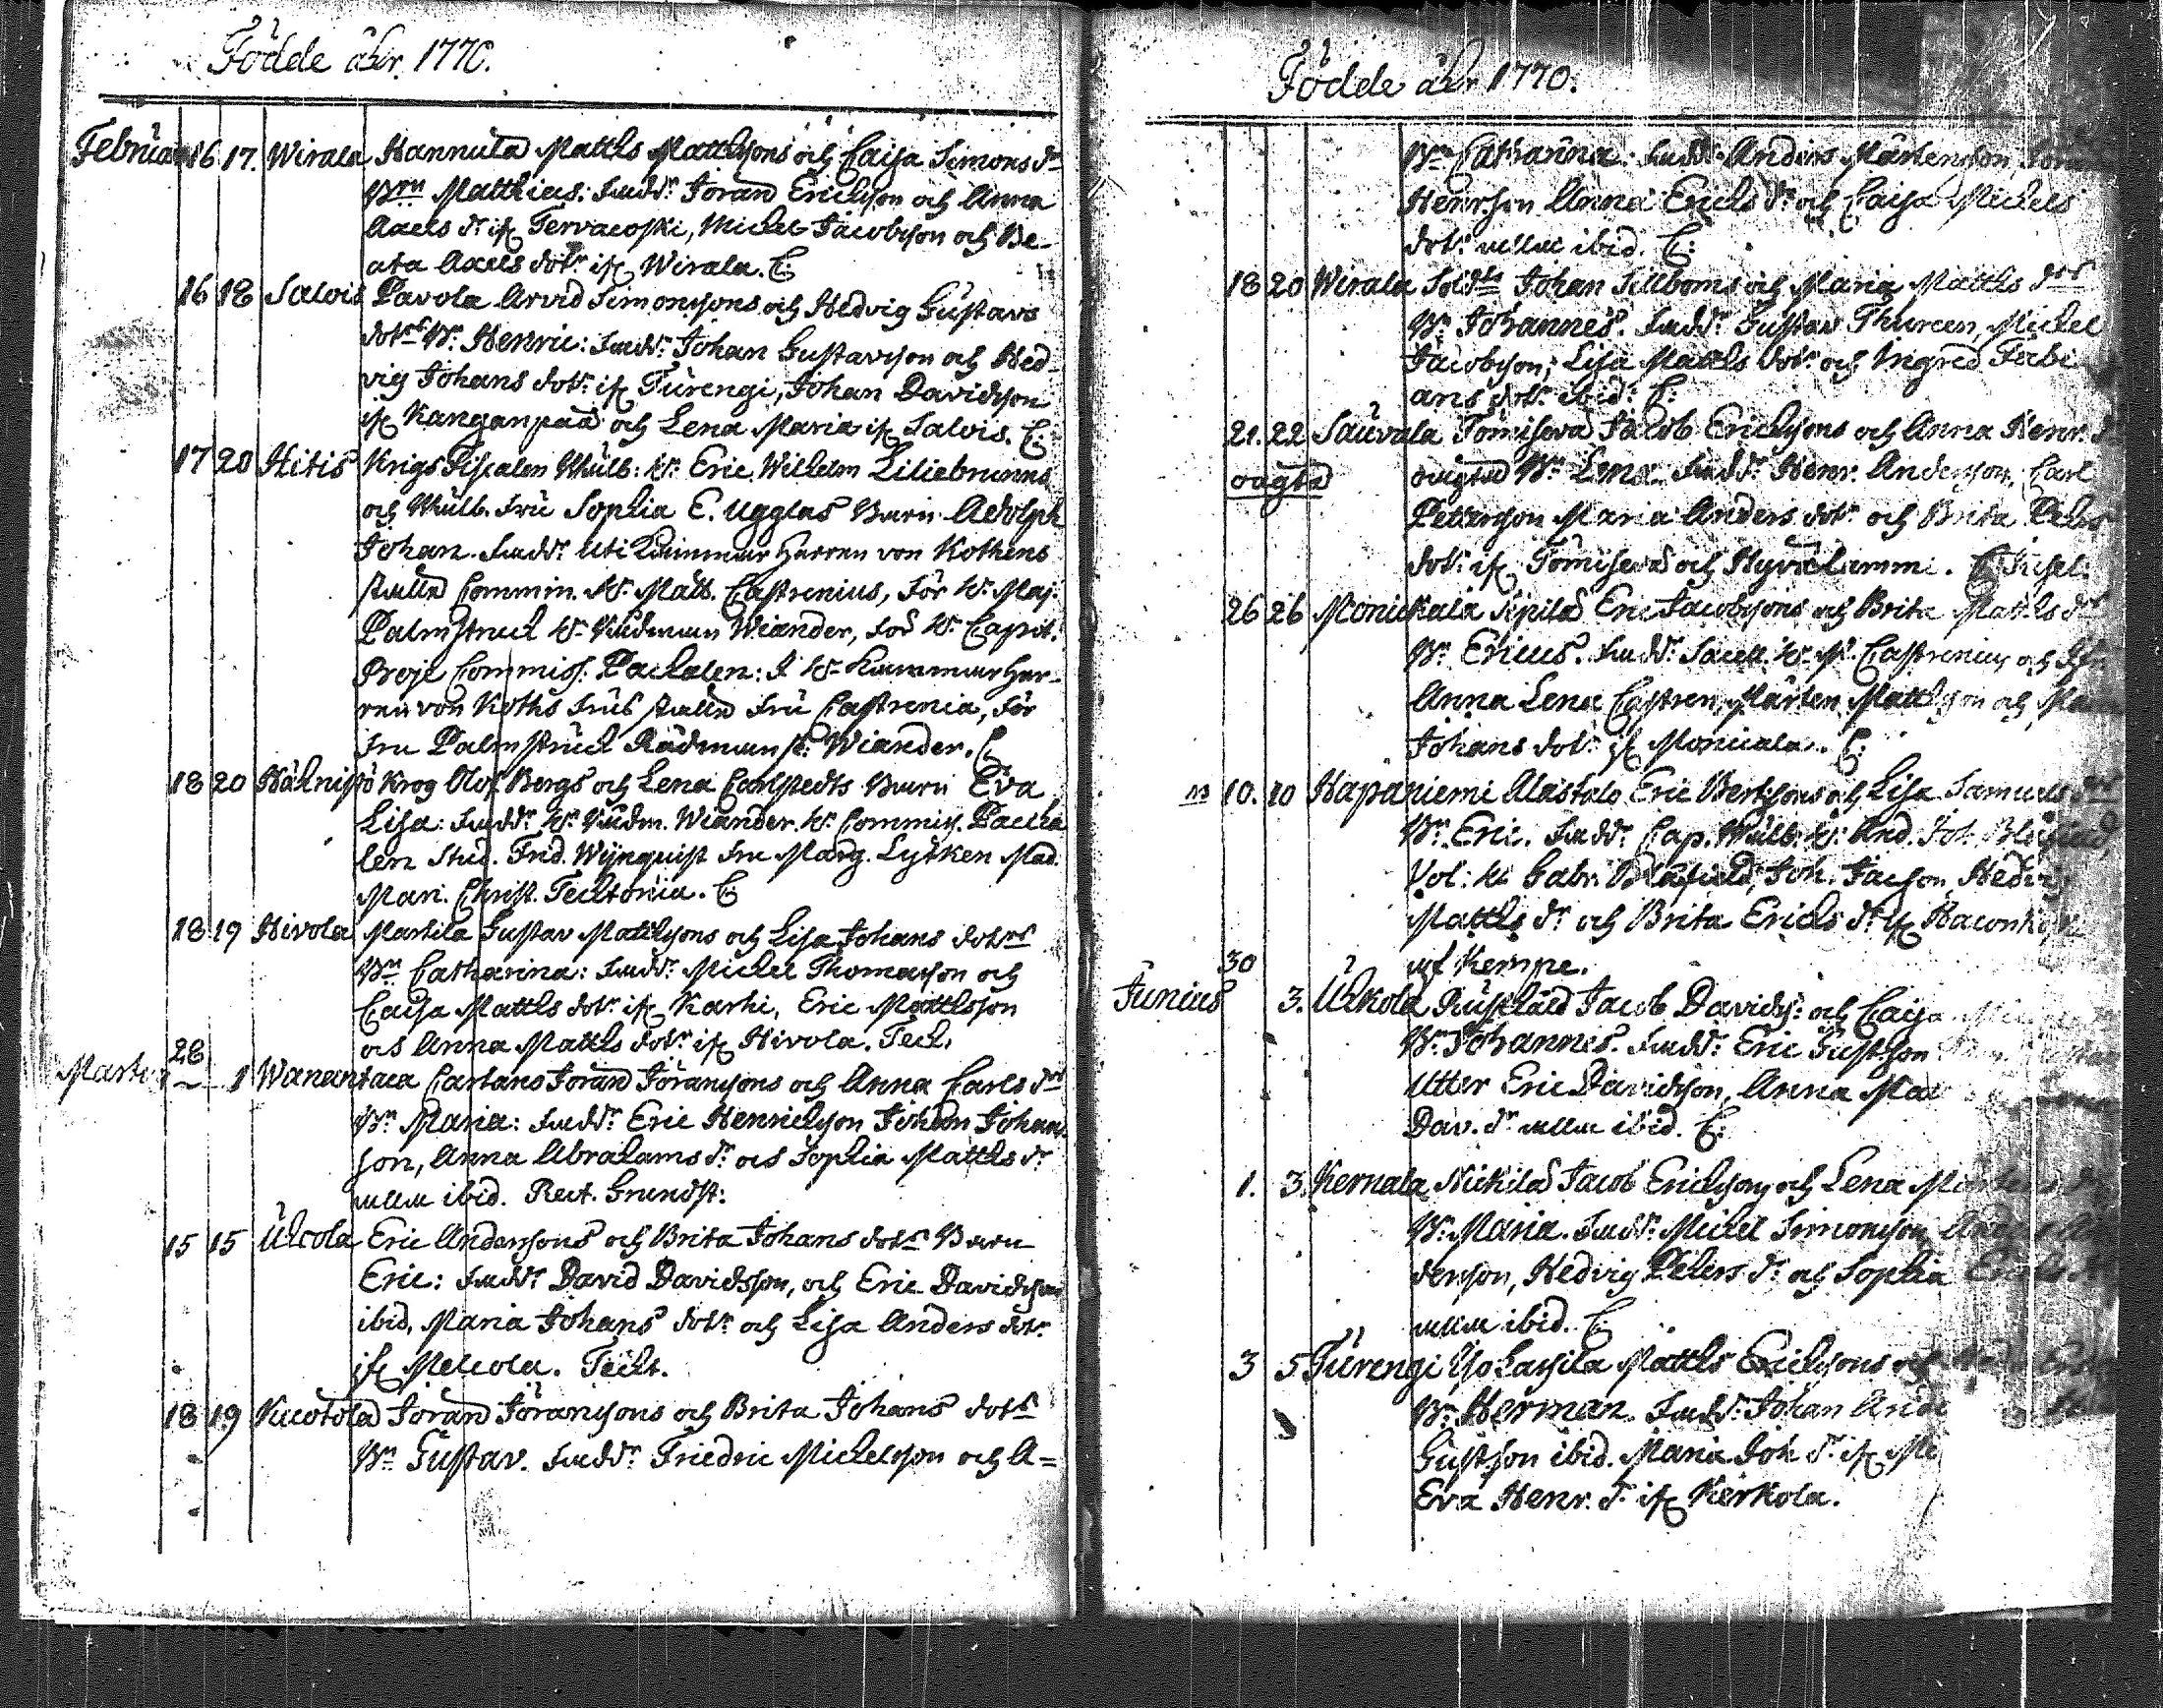 Födde åhr 1770.
Februar 16 17. Wirala Hannula Matths Mattssons och Caisa Simons dr
Brn Matthias: Fadd: Jöran Ericsson och Anna
Axels dr ifr Tervakoski, Michel Jacobsson och Be-
ata Axels dotr ifr Wirala. C:
16 18 Salois Pavola Arvid Simonssons och Hedvig Gustavs
dotrs Bn Henric: Fadd: Johan Gustavsson och Hed-
vig Johans dotr ifr Turengi, Johan Davidsson
ifr Kanganpää och Lena Maria ifr Salois. C:
17 20 Hitis Krigs Fiscalen Wälb: Hr Eric Wilhelm Liliebrunns
och Wälb. Fru Sophia E. Ugglas Barn Adolph
Johan. Fadd: uti Kammar Herren von Kothens
ställe Commin. Hr Matt. Castrenius, för Hr Maj.
Palmstruch Hr Rådman Wiander, för Hr Capit.
Commiss: Pachalen: I Hr Kammar Her-
ren von Koths Frus ställe Fru Castrenia, för
Fru Palmstruch Rådmansk: Wiander. C.
18 20 Krog Olof Bergs och Lena Carlstedts Barn Eva
Lisa: Fadd: Hr Rådm. Wiander. Hr Commiss. Pacha
len Stud. Frid. Wijnquist Fru Marg. Lytken Mad.
Mari. Christ. Techtonia. C:
18 19 Hivola Marttila Gustav Mattssons och Lisa Johans dotrs
Bn Catharina: Fadd: Michel Thomasson och
Caisa Matths dotr ifr Karhi, Eric Mattsson
och Anna Matths dotr ifr Hivola. Tech.
Martii 28 1 Wanantaca Cartano Jöran Göranssons och Anna Carls drs
Bn Maria: Fadd: Eric Henricsson Johan Johans-
son, Anna Abrahams dr och Sophia Matths dr
alla ibid. Rect. Grundst:
15 15 Uhkola Eric Anderssons och Brita Johans dotrs Barn
Eric: Fadd: David Davidsson, och Eric Davidsson
ibid, Maria Johans dotr och Lisa Anders dotr
ifr Melkola. Techt.
18 19 Kuotola Jöran Jöranssons och Brita Johans dotrs
Bn Gustav. Fadd: Friedric Michelsson och A=
Födde åhr 1770.
Bn Catharina: Fadd: Anders Mårtensson,
Henrsson Anna Erics dr och Caisa Michels
dotr alla ibid. C:
18 20 Wirala Soldts Johan Sillboms och Maria Matths drs
Bn Johannes. Fadd: Gustav Thureen, Michel
Jacobsson, Lisa Matths dotr och Ingred Fabi
ans dotr ibid: C:
21. 22 Sauvala Tömisevä Jacob Ericssons och Anna Henr.
oägta oägta Bn Lena. Fadd: Henr. Andersson, Carl
Pettersson Maria Anders dotr och Brita Pehrs
dotr ifr Tömisevä och Hyvälammi.
26 26 Monickala Sipilä Eric Jacobssons och Brita Matths dr
Bn Ericus. Fadd: Hr M. Castrenius och
Anna Lena Castren, Mårten Mattsson och
Johans dotr ifr Monicala. C:
10. 10 Hapaniemi Alastalo Eric Bertssons och Lisa Samuels drs
Bn Eric. Fadd: Cap. Wälb. Hr And. Joh. Blåfield,
Vol: Hr Gabr. Blåfield, Joh. Jacsson, Hedvig
Matths dr och Brita Erics dr ifr
af Kempe.
30
Junius 3. Uhkola Jacob Davids: och Caisa
Bn Johannes. Fadd: Eric Gustsson
Utter Eric Davidsson, Anna
Dav. dr alla ibid. C:
1. 3. Kernala Nickilä Jacob Ericssons och Lena
Bn Maria. Fadd: Michel Simonsson,
dersson, Hedvig Peters dr och Sophia
alla ibid. C:
3 5 Turengi Yso Lassila Matths Ericssons och
Bn Herman. Fadd: Johan
Gustsson ibid. Maria Joh dr ifr
Eva Henr. dr ifr Kerkola.